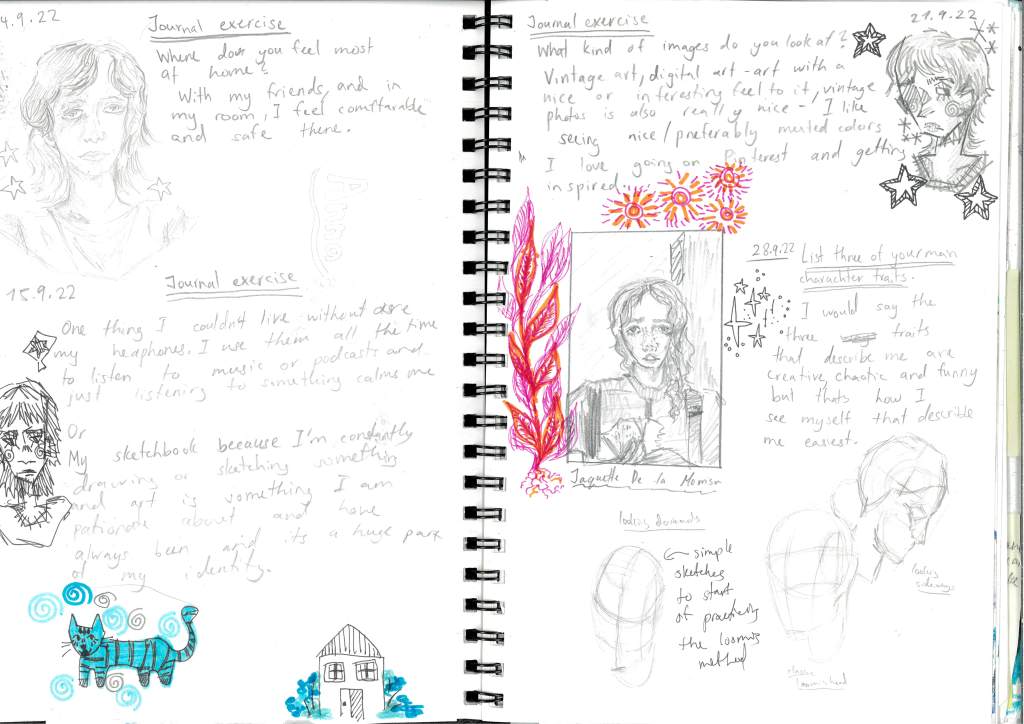 4.9.22
Journal exercise
Where dose you feel most
at home?
With my friends, and in
my room, I feel comftarable
and safe there.
15.9.22
Journal exercise
One thing I couldnt live without are
my headphones. I use them all the time
to listen to music or podcasts and
just listening to something calms me
Or
My sketchbook because I'm constantly
drawing or sketching something
and art is something I am
pationate about and have
always been and its a huge part
of my identity.
Journal exercise
21.9.22
What kind of images do you look at?
Vintage art, digital art - art with a
nice or interesting feel to it, vintage
photos is also really nice - I like
seeing nice/preferably muted colors
I love going on Pinterest and getting
inspired.
28.9.22
List three of your main
charachter traits.
I would say the
three traits
that describe me are
creative, chaotic and funny
but thats how I
see myself that describle
me easiest.
Jaquette De la
looking
simple
sketches
to start
of practicing
the loomis
method
looking
sideways
head